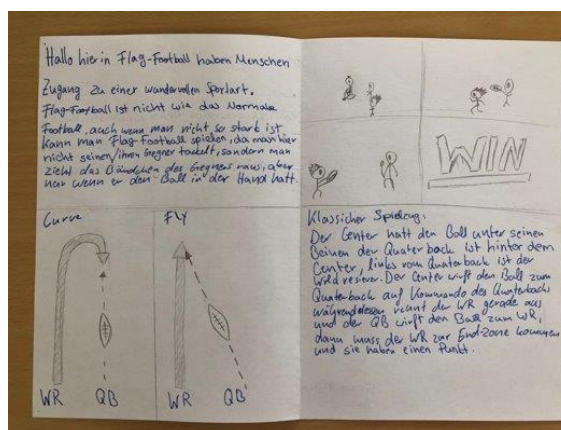 Hallo hier in Flag-Football haben Menschen
Zugang zu einer wundervollen Sportart.
Flag-Football ist nicht wie das Normale
Football, auch wenn man nicht so stark ist
kann man Flag-Football spielen, da man hier
nicht seinen/ihren Gegner tackelt, sondern man
zieht das Bändchen des Gegners raus, aber
nur wenn er den Ball in der Hand hatt.
WIN
Curve
Fly
WR
QB
WR
QB
Klassicher Spielzug:
Der Center hatt den Ball unter seinen
Beinen der Quaterback ist hinter dem
Center, links vom Quaterback ist der
Wild resiever. Der Center wirft den Ball zum
Quaterback auf Kommando des Quaterbacks
währenddessen rennt der WR gerade aus
und der QB wirft den Ball zum WR,
dann muss der WR zur End-Zone kommen
und sie haben einen Punkt.